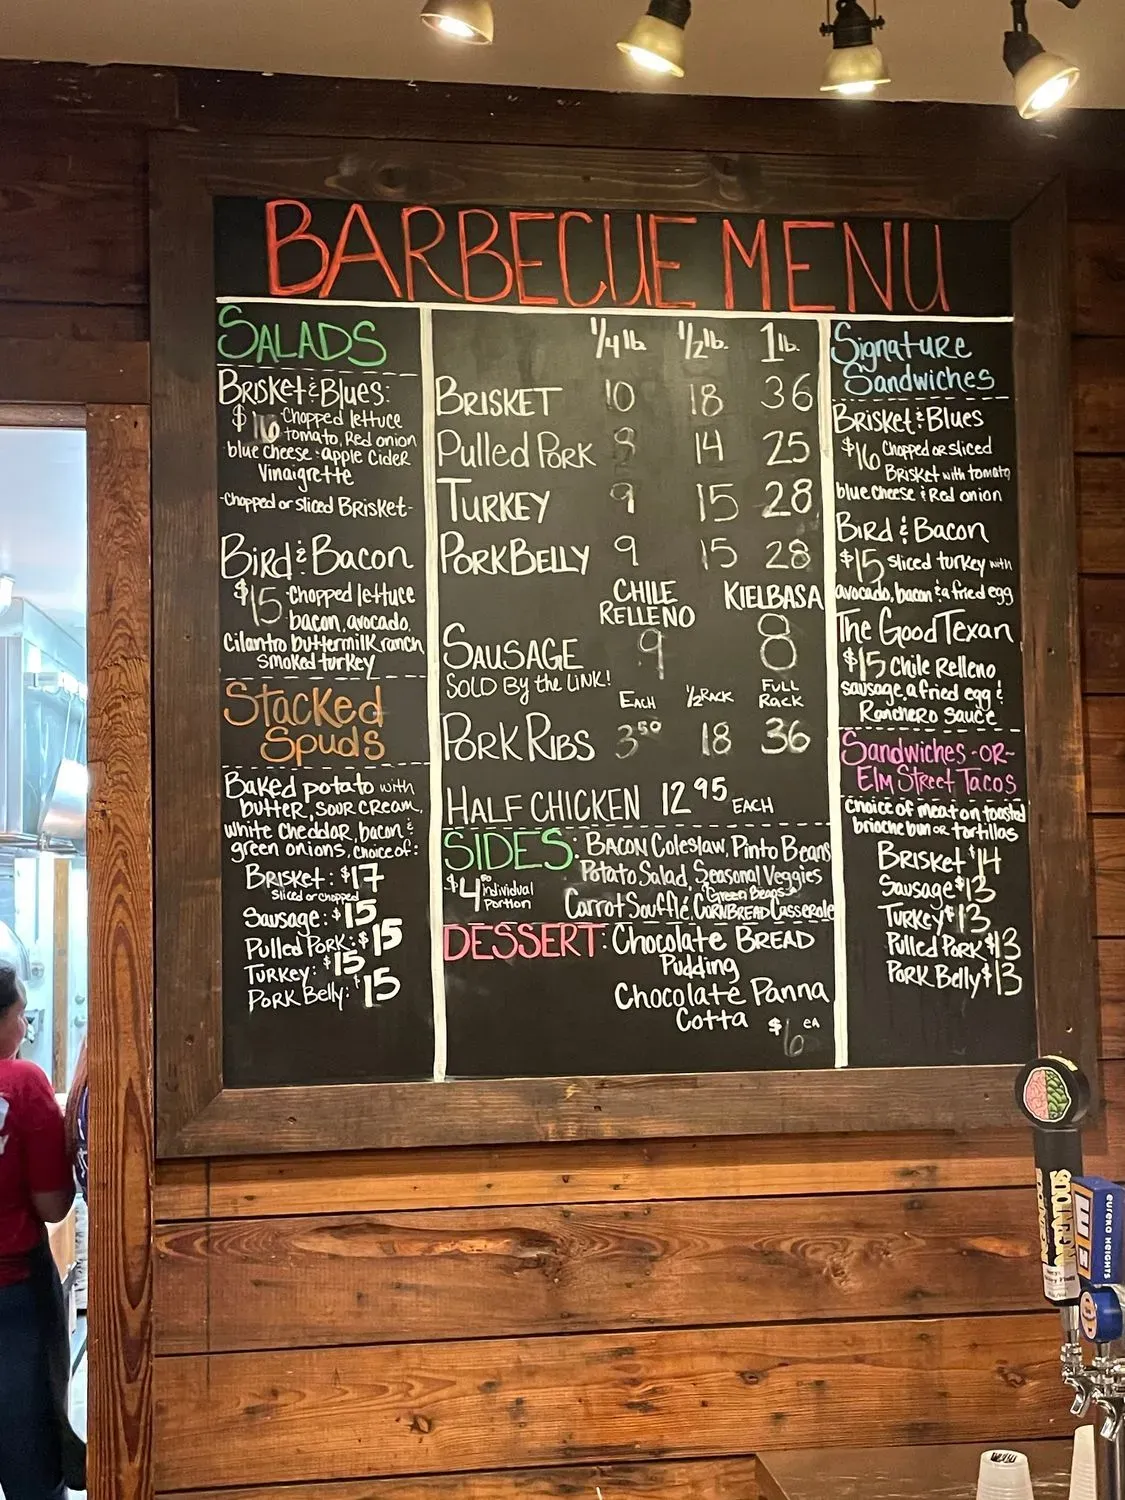 BARBECUE MENU
SALADS
Brisket & Blues:
$16 Chopped lettuce
tomato, Red onion
blue cheese & apple Cider
Vinaigrette
-Chopped or sliced Brisket-
Bird & Bacon
$15 Chopped lettuce
bacon, avocado,
Cilantro buttermilk ranch,
smoked turkey
Stacked
Spuds
Baked potato with
butter, sour cream,
white cheddar, bacon &
green onions, choice of:
Brisket: $17
sliced or chopped
Sausage: $15
Pulled Pork: $15
Turkey: $15
Pork Belly: $15
1/4 lb. 1/2 lb. 1 lb.
BRISKET 10 18 36
Pulled Pork 8 14 25
TURKEY 9 15 28
PORK BELLY 9 15 28
CHILE RELLENO KIELBASA
SAUSAGE 9 8
SOLD By the LINK!
EACH 1/2 RACK FULL RACK
PORK RIBS 3.50 18 36
HALF CHICKEN 12.95 EACH
SIDES: BACON Coleslaw, Pinto Beans
Potato Salad, Seasonal Veggies
$4.00 individual portion
Green Beans
Carrot Soufflé, CORNBREAD Casserole
DESSERT: Chocolate BREAD
Pudding
Chocolate Panna
Cotta $6 EA
Signature
Sandwiches
Brisket & Blues
$16 Chopped or sliced
Brisket with tomato
blue cheese & Red onion
Bird & Bacon
$15 sliced turkey with
avocado, bacon & a fried egg
The Good Texan
$15 Chile Relleno
sausage, a fried egg &
Ranchero Sauce
Sandwiches -OR-
Elm Street Tacos
choice of meat on toasted
brioche bun or tortillas
Brisket $14
Sausage $13
Turkey $13
Pulled Pork $13
Pork Belly $13
EUREKA HEIGHTS